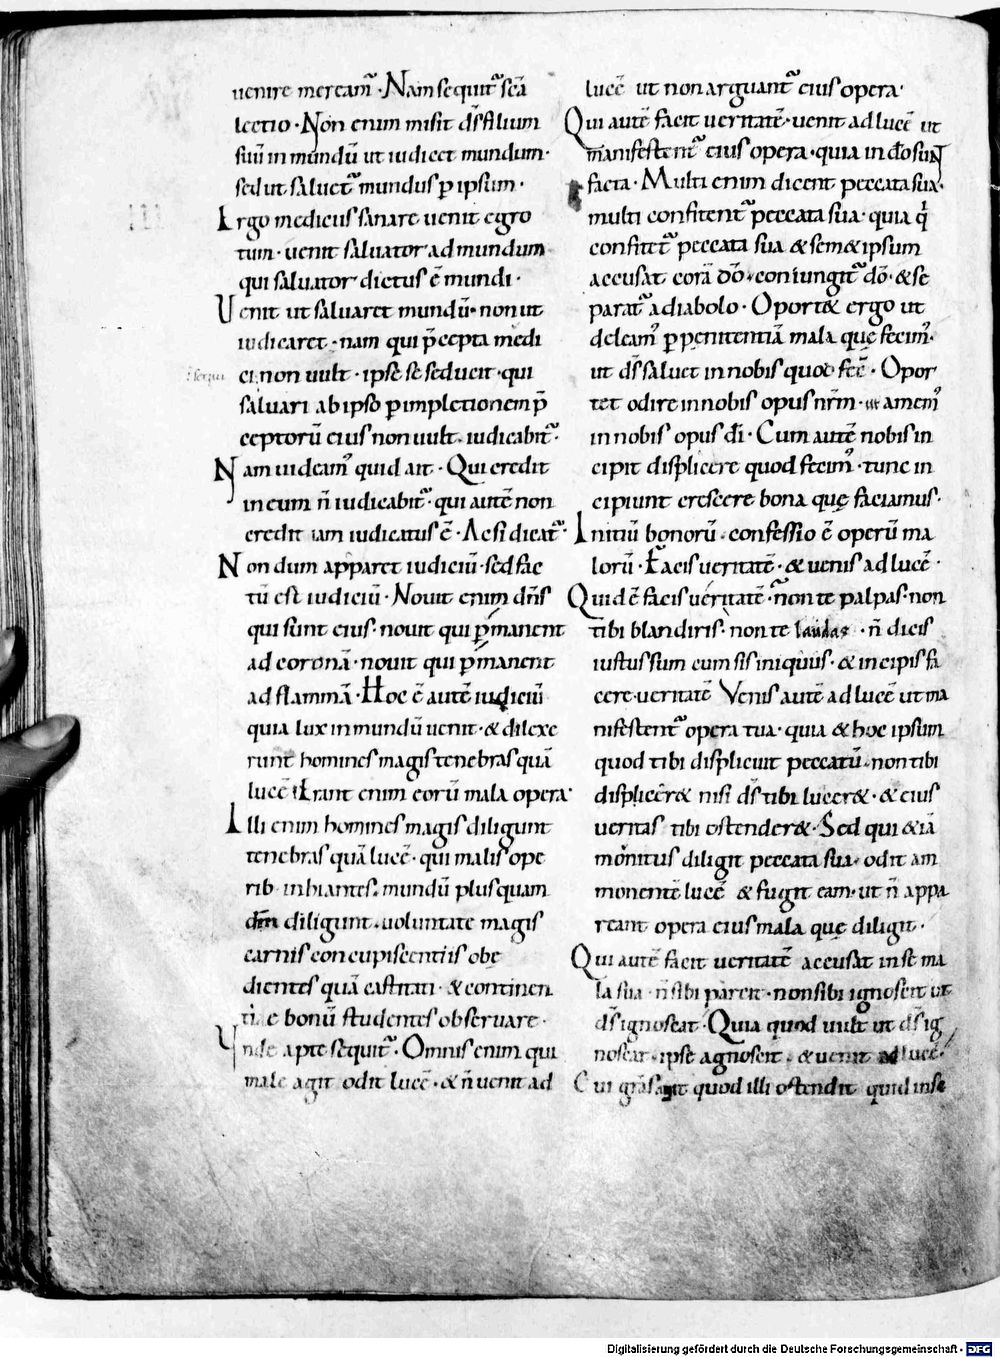 uenire meream᷑ · Nam sequit᷑ sc̄a
lectio · Non enim misit d̄s filium
suū in mundū ut iudicet mundum ·
sed ut saluet᷑ mundus p̄ ipsum ·
Ergo medicus sanare uenit egro
tum · uenit saluator ad mundum
qui saluator dictus ē mundi ·
Uenit ut saluaret mundū · non ut
iudicaret · nam qui p̄cepta medi
ci non uult · ipse se seducit · qui
saluari ab ipso p̄ impletionem p̄
ceptorū eius non uult · iudicabit᷑ ·
Nam uideam᷑ quid ait · Qui credit
in eum n̄ iudicabit᷑ · qui autē non
credit iam iudicatus ē · Ac si dicat᷑ ·
Non dum apparet iudiciū · sed fac
tū est iudiciū · Nouit enim dn̄s
qui sunt eius · nouit qui p̄manent
ad coronā · nouit qui p̄manent
ad flammā · Hoc ē autē iudiciū
quia lux in mundū uenit · & dilexe
runt homines magis tenebras quā
lucē · Erant enim eorū mala opera ·
Illi enim homines magis diligunt
tenebras quā lucē · qui malis ope
rib· inhiantes · mundū plus quam
dm̄ diligunt · uoluntate magis
carnis concupiscentiis obę
dientes quā castitati · & continen
tiae bonū studentes obseruare ·
Unde apte sequit᷑ · Omnis enim qui
male agit odit lucē · & n̄ uenit ad
lucē ut non arguant᷑ eius opera ·
Qui autē facit ueritatē · uenit ad lucē ut
manifestent᷑ eius opera · quia in do̅ sunt
facta · Multi enim dicent peccata sua ·
multi confitent᷑ peccata sua · quia q̇
confitet᷑ peccata sua & semet ipsum
accusat corā do̅ · coniungit᷑ do̅ · & se
parat᷑ a diabolo · Oportet ergo ut
deleam᷑ p̄ penitentiā mala quę fecim᷑ ·
ut d̄s saluet in nobis quod fec̄ · Opor
tet odire in nobis opus nr̄m · ut amem᷑
in nobis opus di̅ · Cum autē nobis in
cipit displicere quod fecim᷑ · tunc in
cipiunt crescere bona quę faciamus ·
Initiū bonorū · confessio ē operū ma
lorū · Facis ueritatē · & uenis ad lucē ·
Quid ē facis ueritatē · non te palpas · non
tibi blandiris · non te laudas · n̄ dicis
iustus sum cum sis iniquus · & incipis fa
cere ueritatē Venis autē ad lucē ut ma
nifestent᷑ opera tua · quia & hoc ipsum
quod tibi displicuit peccatū · non tibi
displicer& nisi d̄s tibi lucer& · & eius
ueritas tibi ostender& · Sed qui & iā
monitus diligit peccata sua · odit am
monentē lucē & fugit eam · ut n̄ appa
reant opera eius mala quę diligit ·
Qui autē facit ueritatē accusat in se ma
la sua · n̄ sibi parcit · non sibi ignoscit ut
d̄s ignoscat · Quia quod uult ut d̄s ig
noscat · ipse agnoscit · & uenit ad lucē ·
Cui gr̄as agit quod illi ostendit quid in se
Digitalisierung gefördert durch die Deutsche Forschungsgemeinschaft - DFG